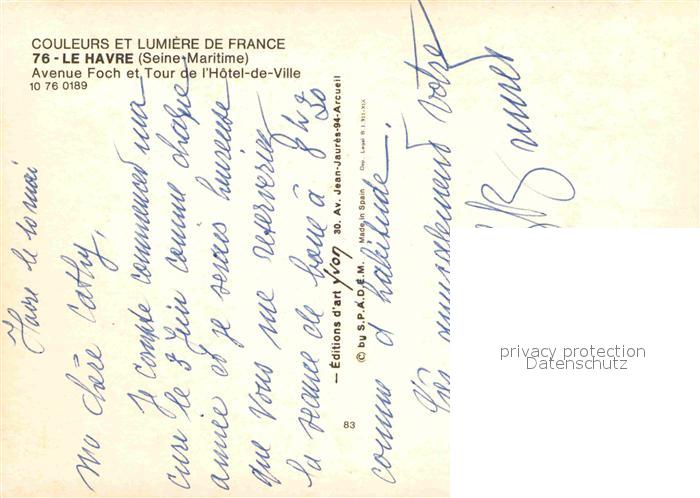 COULEURS ET LUMIÈRE DE FRANCE
76 - LE HAVRE (Seine-Maritime)
Avenue Foch et Tour de l'Hôtel-de-Ville
10 76 0189
Havre le 10 mai
Ma chère Cathy,
Je compte commencer ma
cure le 3 Juin comme chaque
année et je serais heureuse
que vous me reserviez
la seance de boue à 8 h 30
comme d'habitude.
Très amicalement votre
— Éditions d'art yvon 30, Av. Jean-Jaurès-94-Arcueil
© by S.P.A.D.E.M. Made in Spain Dep. Legal B.
83
privacy protection
Datenschutz